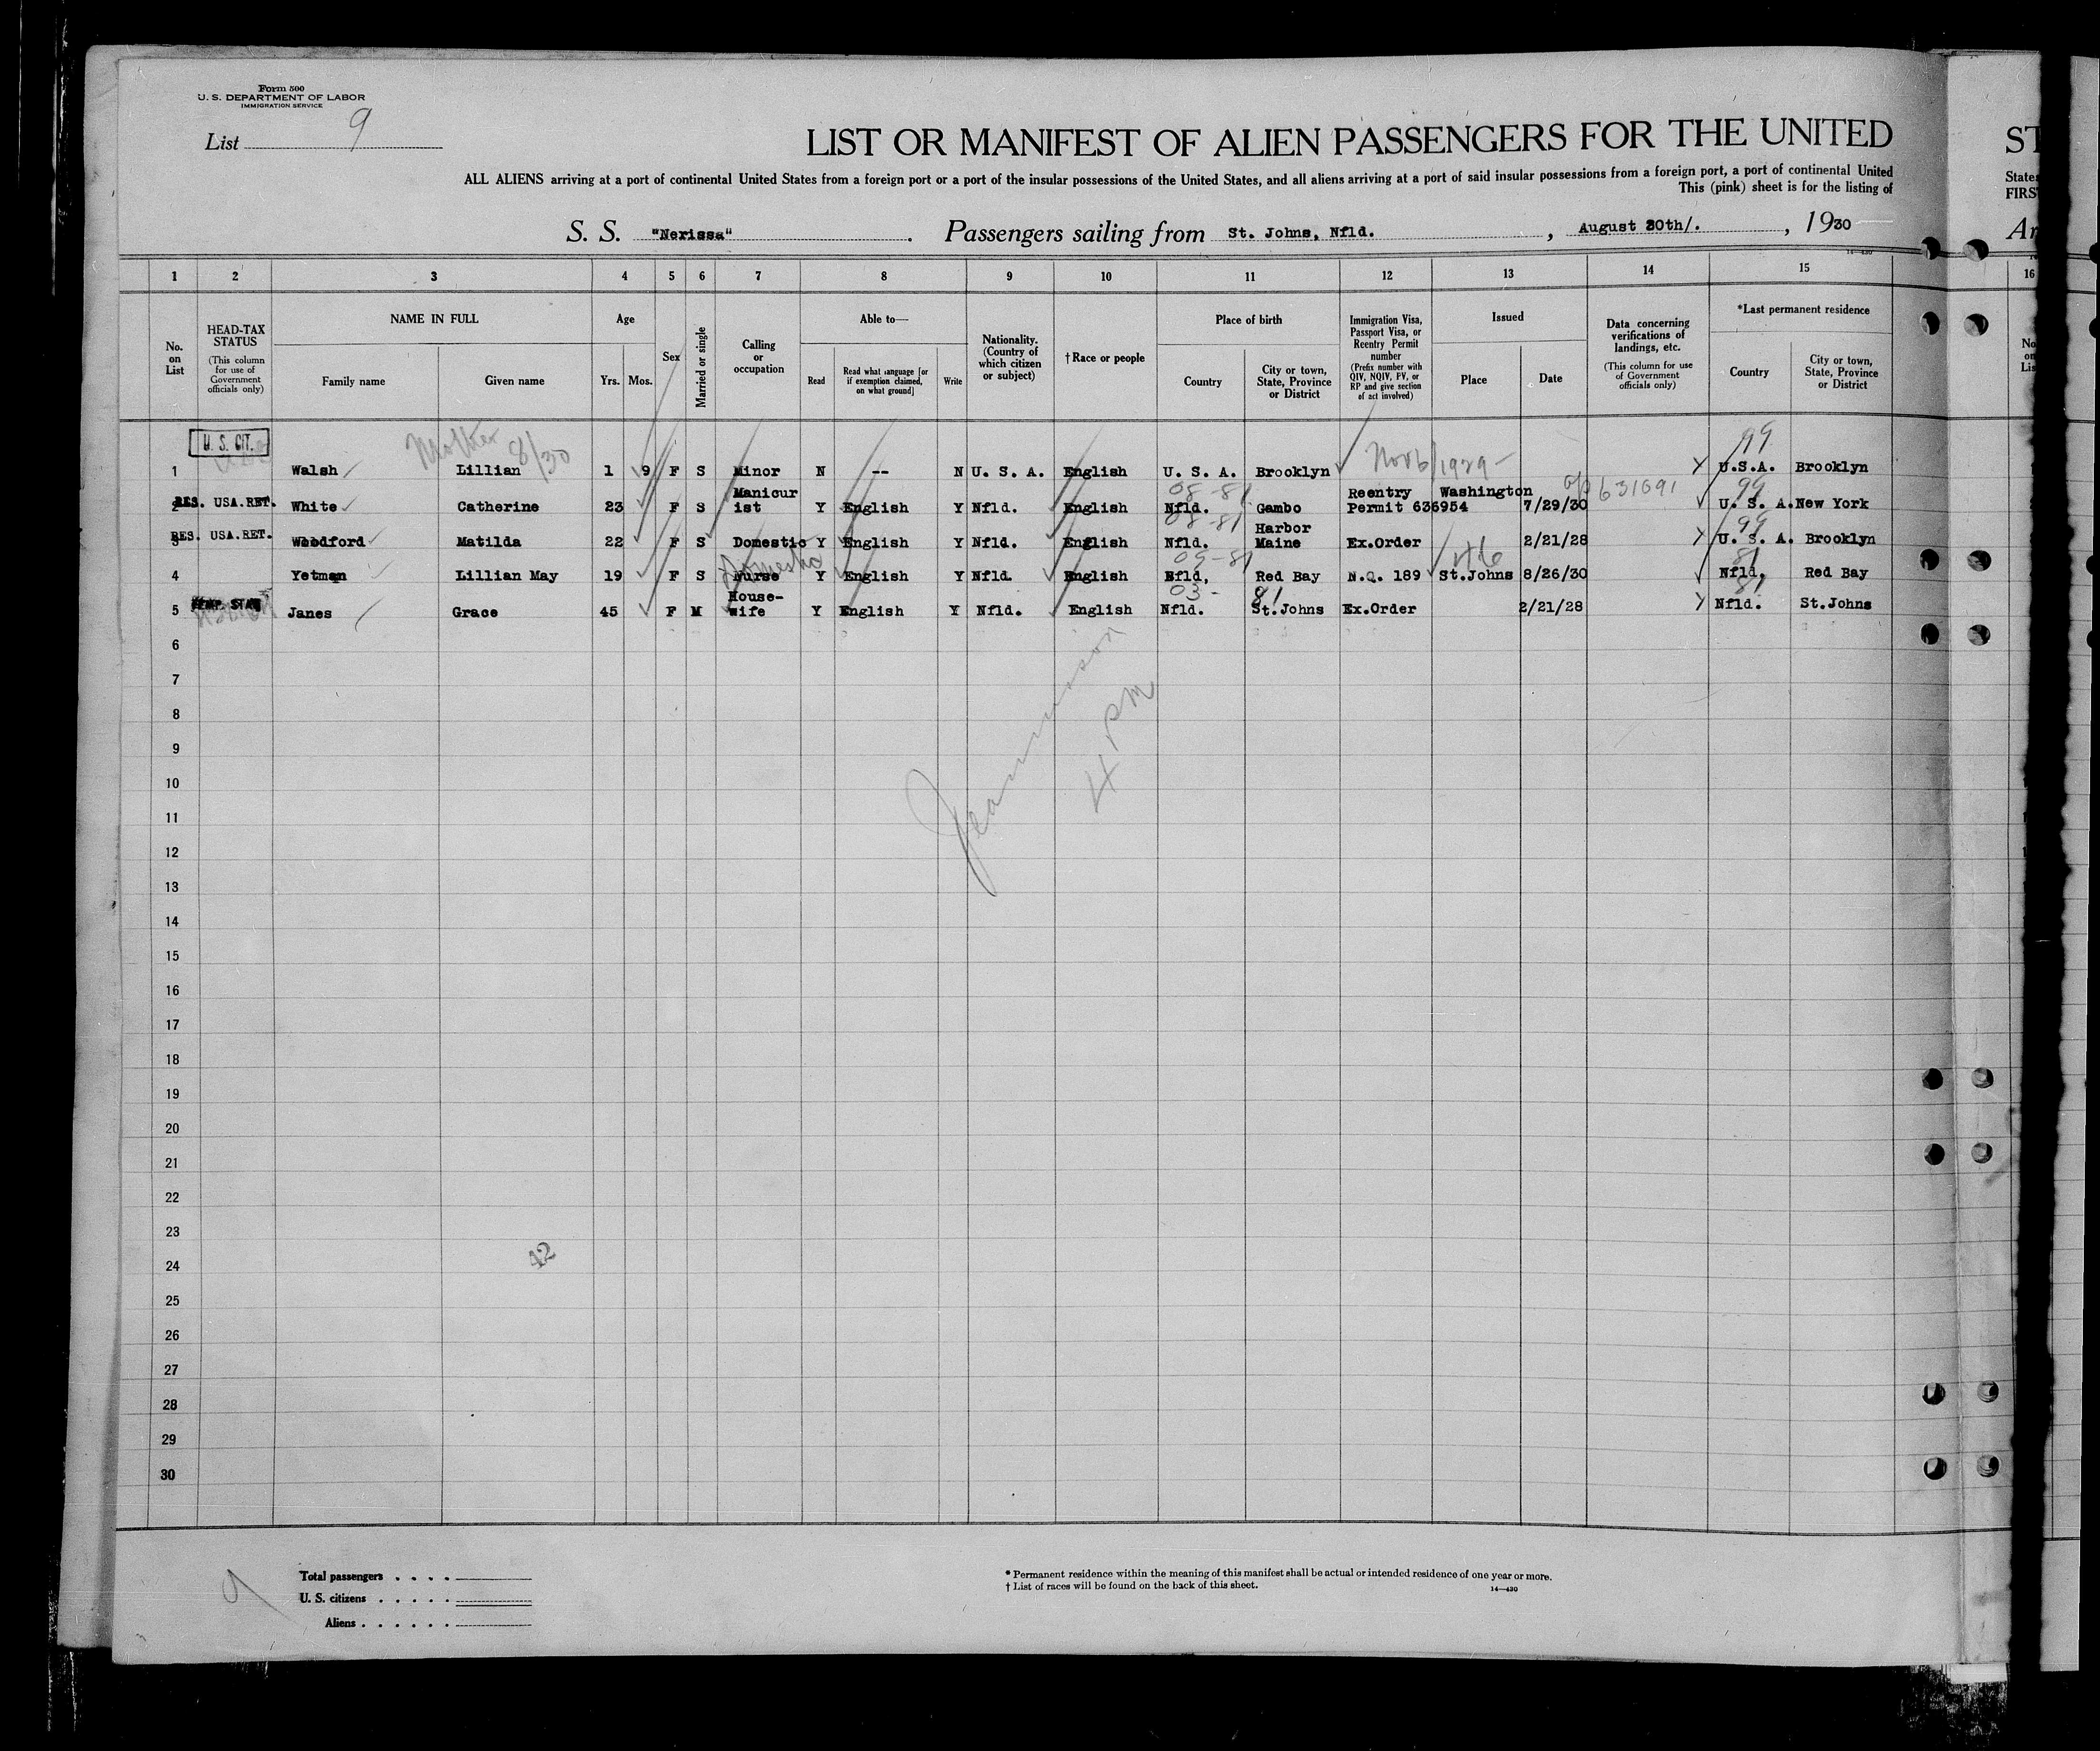 Form 500
U. S. DEPARTMENT OF LABOR
IMMIGRATION SERVICE
List 9
LIST OR MANIFEST OF ALIEN PASSENGERS FOR THE UNITED
ST
ALL ALIENS arriving at a port of continental United States from a foreign port or a port of the insular possessions of the United States, and all aliens arriving at a port of said insular possessions from a foreign port, a port of continental United
States
This (pink) sheet is for the listing of
FIRS
S. S. "Nerissa". Passengers sailing from St. Johns, Nfld., August 30th/., 1930
Ar
14—430
1 2 3 4 5 6 7 8 9 10 11 12 13 14 15 16
No. on List
HEAD-TAX STATUS (This column for use of Government officials only)
NAME IN FULL
Family name
Given name
Age
Yrs.
Mos.
Sex
Married or single
Calling or occupation
Able to—
Read
Read what language [or if exemption claimed, on what ground]
Write
Nationality. (Country of which citizen or subject)
† Race or people
Place of birth
Country
City or town, State, Province or District
Immigration Visa, Passport Visa, or Reentry Permit number (Prefix number with QIV, NQIV, PV, or RP and give section of act involved)
Issued
Place
Date
Data concerning verifications of landings, etc. (This column for use of Government officials only)
*Last permanent residence
Country
City or town, State, Province or District
No. on List
U. S. CIT. Mother 8/30 99
1 Walsh Lillian 1 9 F S Minor N -- N U. S. A. English U. S. A. Brooklyn 1929 U.S.A. Brooklyn
08-81 631691 99
2 RES. USA.RET. White Catherine 23 F S Manicurist Y English Y Nfld. English Nfld. Gambo Reentry Permit 636954 Washington 7/29/30 U. S. A. New York
08-81 99
3 RES. USA.RET. Woodford Matilda 22 F S Domestic Y English Y Nfld. English Nfld. Harbor Maine Ex.Order 2/21/28 U. S. A. Brooklyn
Domestic 81
4 Yetman Lillian May 19 F S Nurse Y English Y Nfld. English Nfld, Red Bay N.Q. 189 St.Johns 8/26/30 Nfld, Red Bay
03- 81 81
5 TEMP. STAY Janes Grace 45 F M House-wife Y English Y Nfld. English Nfld. St.Johns Ex.Order 2/21/28 Nfld. St.Johns
6
7
8
4 PM
9
10
11
12
13
14
15
16
17
18
19
20
21
22
23
42
24
25
26
27
28
29
30
9
Total passengers . . . .
U. S. citizens . . . . .
Aliens . . . . . .
* Permanent residence within the meaning of this manifest shall be actual or intended residence of one year or more.
† List of races will be found on the back of this sheet.
14—430